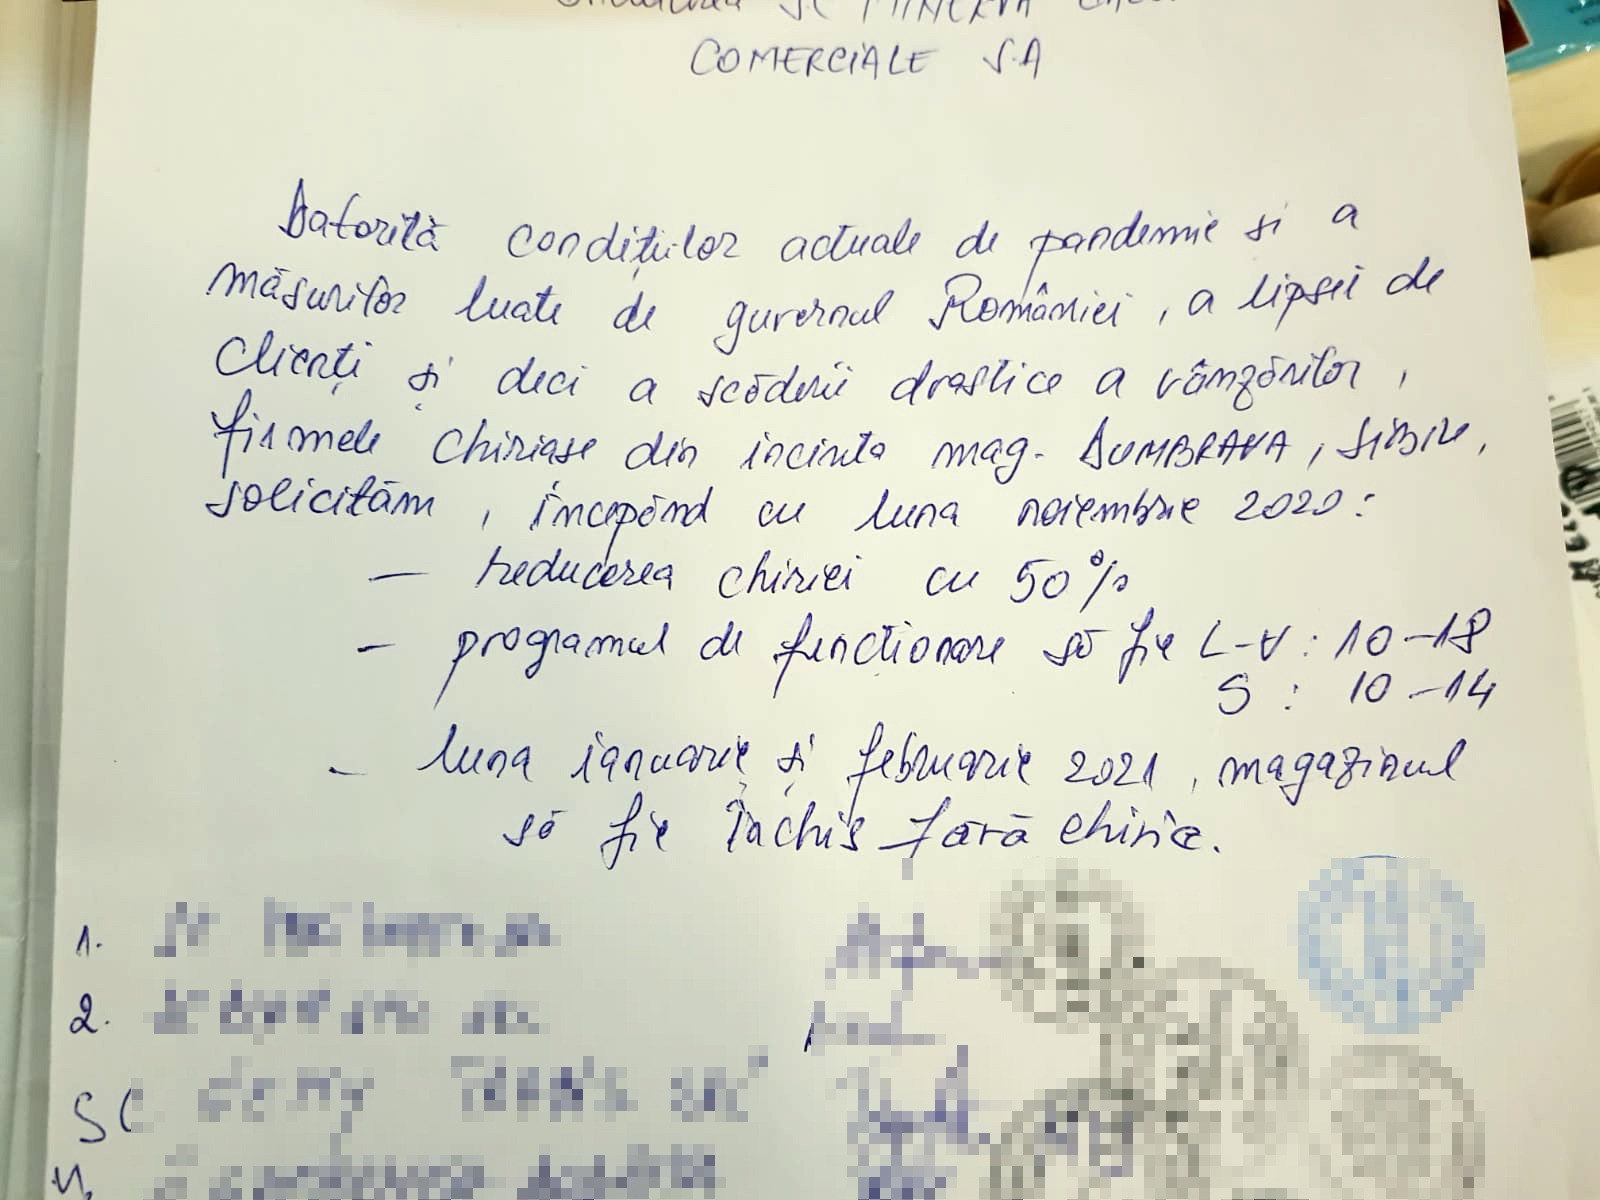 SC MINERVA
COMERCIALE S.A
Datorită condițiilor actuale de pandemie și a
măsurilor luate de guvernul României, a lipsei de
clienți și deci a scăderii drastice a vânzărilor,
firmele chiriașe din incinta mag. DUMBRAVA, SIBIU,
solicităm, începând cu luna noiembrie 2020:
— reducerea chiriei cu 50%
- programul de funcționare să fie L-V: 10-18
S: 10-14
- luna ianuarie și februarie 2021, magazinul
să fie închis fără chirie.
1.
2.
SC
4.